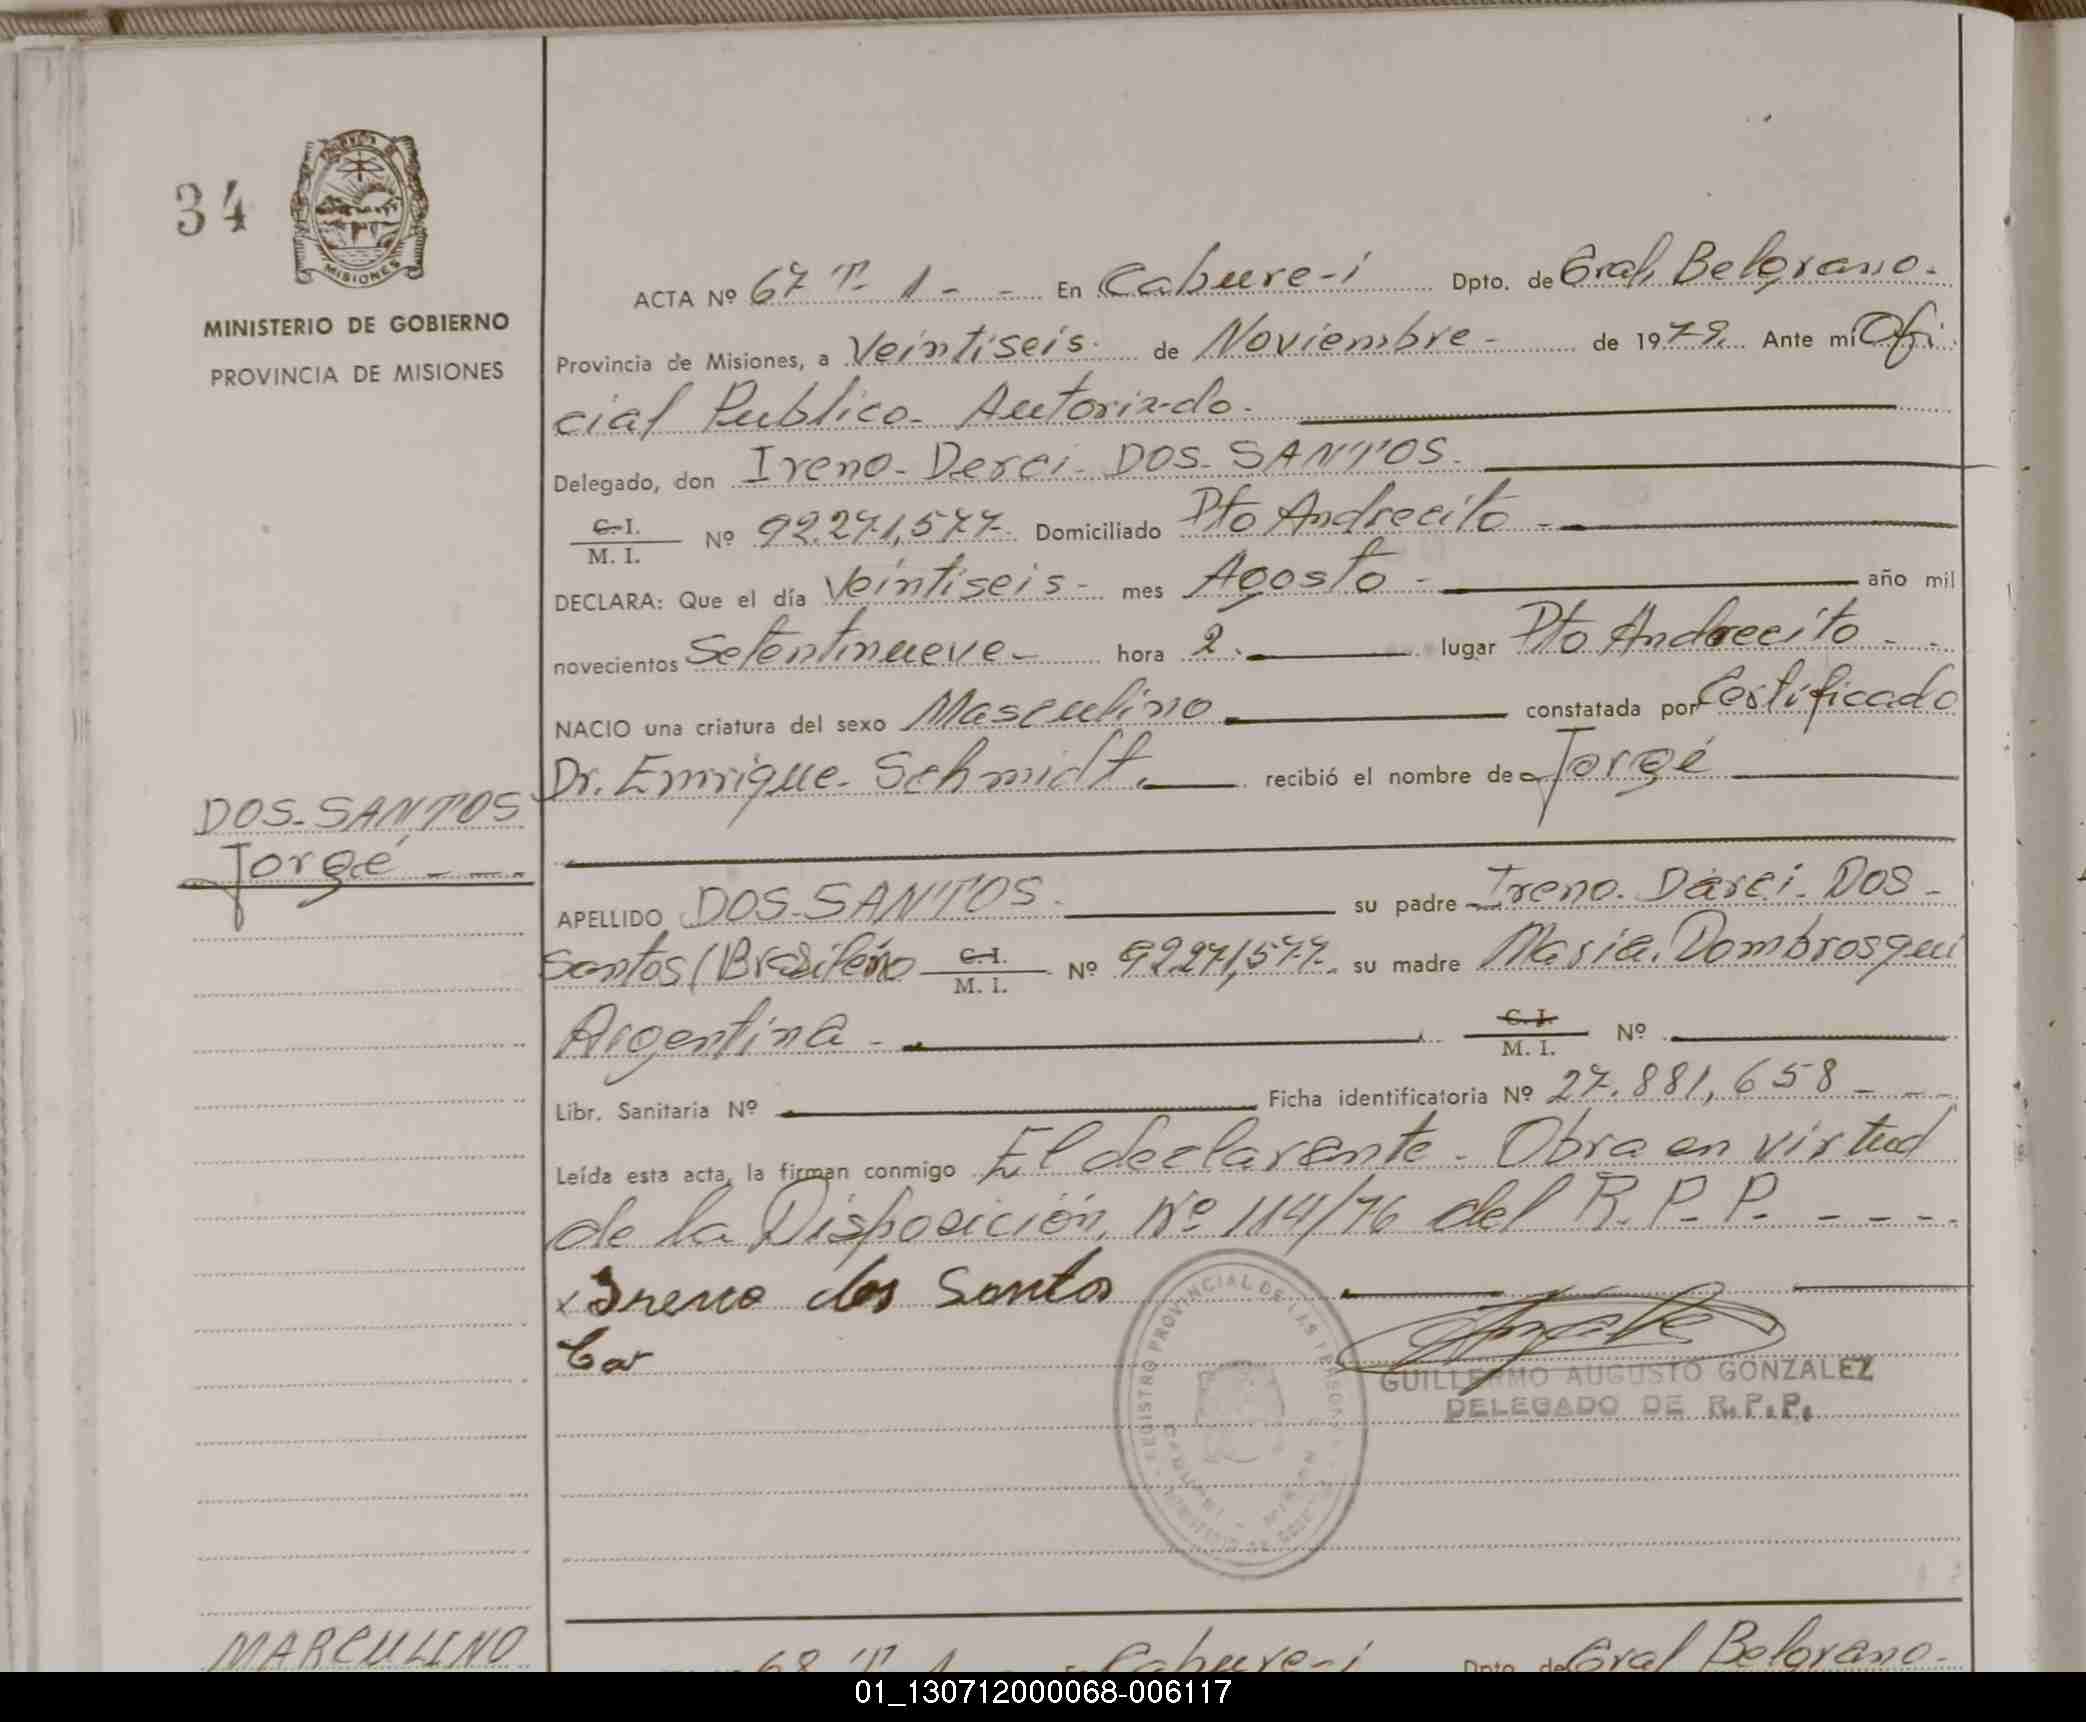 34
MISIONES
MINISTERIO DE GOBIERNO
PROVINCIA DE MISIONES
ACTA Nº 67 T- 1 - - En Cabure-i Dpto. de Gral. Belgrano.
Provincia de Misiones, a Veintiseis. de Noviembre - de 1979. Ante mí Ofi
cial Publico. Autorizado.
Delegado, don Ireno- Derci- DOS- SANTOS.
C. I.
M. I.
Nº 92.271,577. Domiciliado Pto Andrecito -
DECLARA: Que el día Veintiseis - mes Agosto - año mil
novecientos Setentinueve - hora 2. lugar Pto Andrecito - -
NACIO una criatura del sexo Masculino constatada por Certificado
Dr. Enrrique- Schmidt. recibió el nombre de Jorgé
DOS-SANTOS
Jorgé - - -
APELLIDO DOS-SANTOS. su padre Ireno. Darci- Dos -
Santos (Brasileño C. I. Nº 92271,577. su madre Maria. Dombrosqui
M. I.
Argentina - C. I. Nº
M. I.
Libr. Sanitaria Nº Ficha identificatoria Nº 27.881,658 - - -
Leída esta acta, la firman conmigo El declarante. Obra en virtud
de la Disposición, Nº 114/76 del R.P.P. - - - -
x Ireno dos Santos
REGISTRO PROVINCIAL DE LAS PERSONAS
GUILLERMO AUGUSTO GONZALEZ
DELEGADO DE R.P.P.
MARCULINO
68 T 1 Cabure-i Dpto. de Gral Belgrano-
01_130712000068-006117